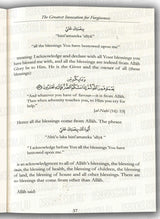 The Greatest Invocation for Forgiveness
بنعمتك علي
"bini'matika 'alyá"
"all the blessings You have bestowed upon me"
meaning I acknowledge and declare with all Your blessings you
have blessed me with, and all the blessings are indeed from Allāh.
Glory be to Him. He is the Giver and the owner of all (these
blessings)
«And whatever you have of favour—it is from Allāh.
Then when adversity touches you, to Him you cry for
help»
[al-Naḥl (16): 53]
Hence all the blessings come from Allāh. The phrase
"I acknowledge before You all the blessings You have
bestowed upon me"
is an acknowledgment to all of Allāh's blessings, the blessing of
man, the blessing of health, the blessing of children, the blessing
food, the blessing of house and all other blessings. There are
no blessings that come from other than Allāh.
Allāh said:
57